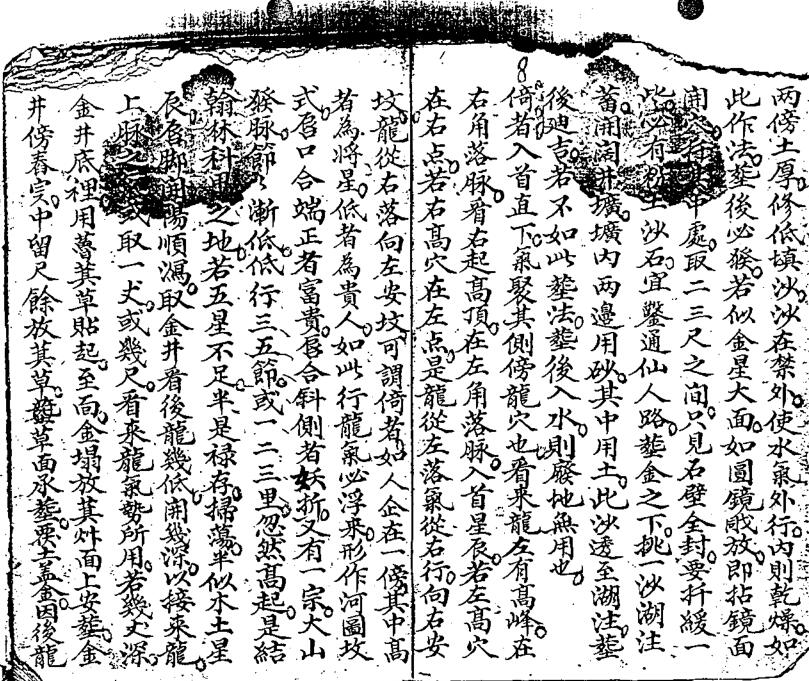 兩傍土厚修低填沙沙在禁外使水氣外行內則乾燥如
此作法塟後必發若似金星大面如圓鏡戝放即拈鏡面
開行其中處取二三尺之間只見石壁全封要扦緩一
些必有土沙石宜鑿通仙人路塟金之下挑一沙湖注
蓄開濶井壙壙內两邊用砂其中用土此沙透至湖注塟
後廸吉若不如此塟法塟後入水則廢地無用也
倚者入首直下氣聚其側傍龍穴也看來龍左有高峰在
右角落脉看右起高頂在左角落脉入首星辰若左高穴
在右点若右高穴在左点是龍從左落氣從右行向右安
坟龍從右落向左安坟可謂倚者如人企在一傍其中高
者為將星低者為貴人如此行龍氣必浮來形作河圖坟
式唇口合端正者富貴唇合斜側者妖折又有一宗大山
發脉節々漸低低行三五節或一二三里忽然高起是結
翰林科甲之地若五星不足半是祿存掃蕩半似木土星
辰唇脚開陽順瀉取金井看後龍幾低開幾深以接來龍
上脉之或取一丈或幾尺看來龍氣勢所用若幾丈深
金井底裡用魯萁草貼起至面金塌放萁灶面上安塟金
井傍舂実中留尺餘放萁草草面承塟要土盖金因後龍
8